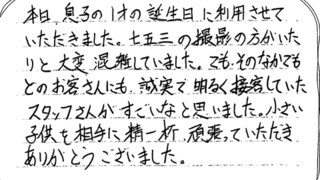 本日、息子の1才の誕生日に利用させて
いただきました。七五三の撮影の方がいた
りと大変混雑していました。でも、そのなかでも
どのお客さんにも、誠実で明るく接客していた
スタッフさんがすごいなと思いました。小さい
子供を相手に精一杯、頑張っていただき
ありがとうございました。